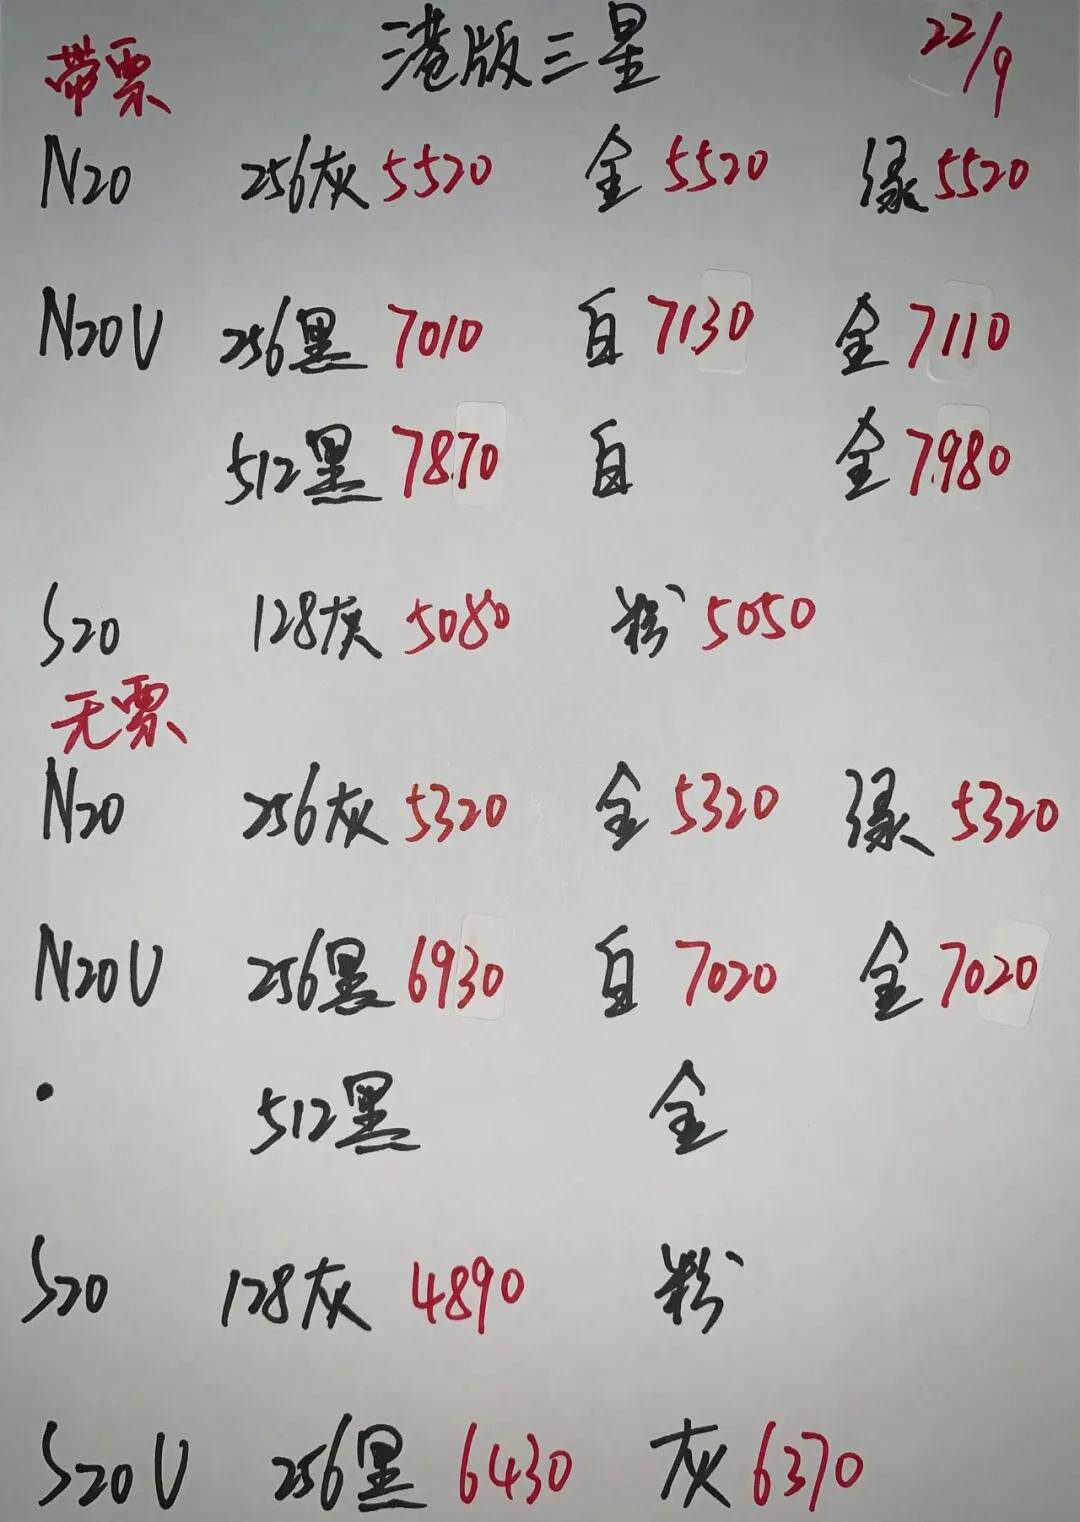 带票 港版三星 22/9
N20 256灰 5520 金 5520 绿 5520
N20U 256黑 7010 白 7130 金 7110
512黑 7870 白 金 7980
S20 128灰 5080 粉 5050
无票
N20 256灰 5320 金 5320 绿 5320
N20U 256黑 6930 白 7020 金 7020
512黑 金
S20 128灰 4890 粉
S20U 256黑 6430 灰 6370